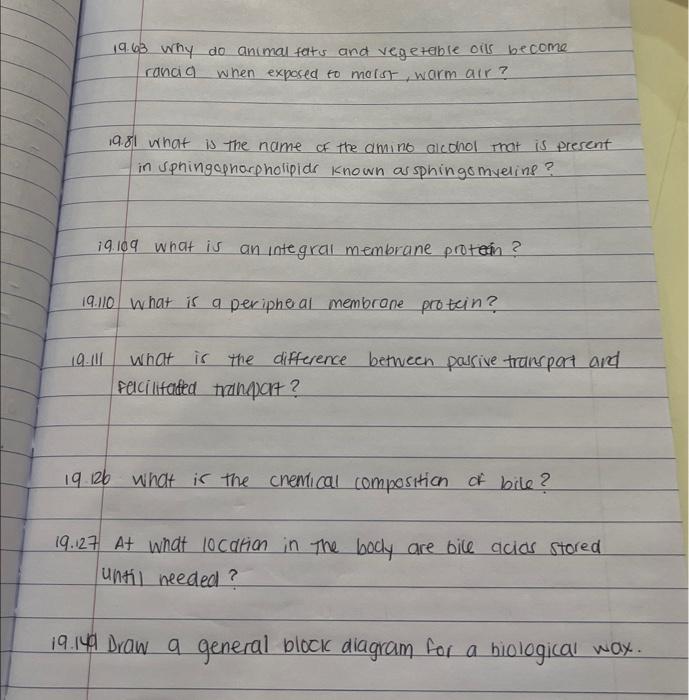 19.63 why do animal fats and vegetable oils become
rancid when exposed to moist, warm air?
19.81 what is the name of the amino alcohol that is present
in sphingophospholipids known as sphingomyeline?
19.109 what is an integral membrane protein?
19.110 what is a peripheal membrane protein?
19.111 what is the difference between passive transport and
facilitated transport?
19.126 what is the chemical composition of bile?
19.127 At what location in the body are bile acids stored
until needed?
19.149 Draw a general block diagram for a biological wax.